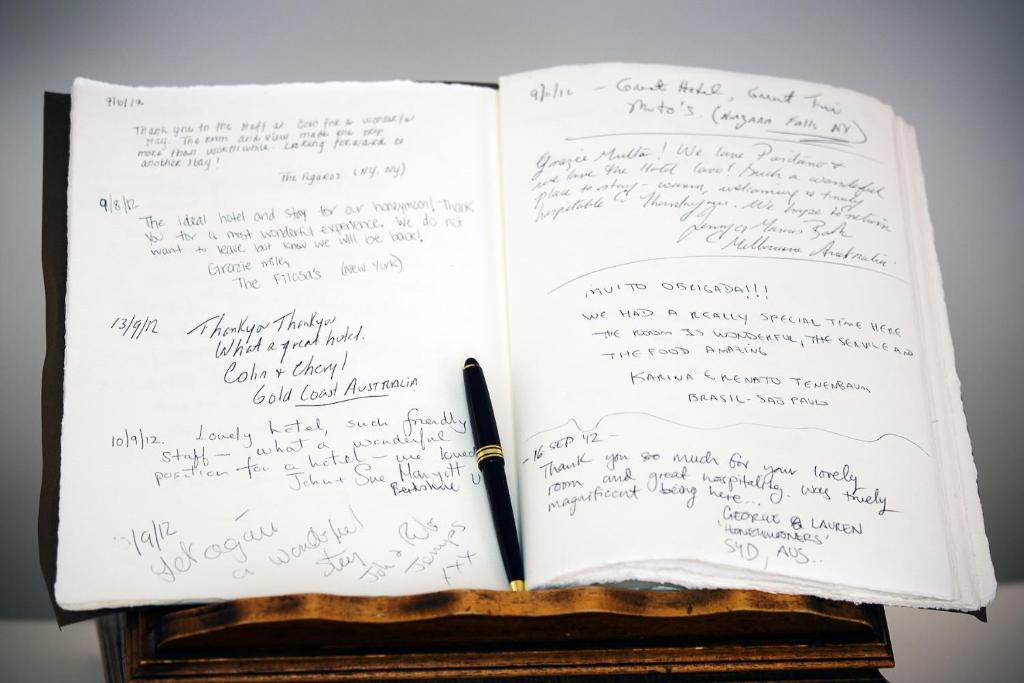 Thank you to the staff at Covo for a wonderful
stay. The room and view made the trip
more than worthwhile. Looking forward to
another stay!
The Pigaros (NY, NY)
9/8/12
The ideal hotel and stay for our honeymoon! Thank
you for a most wonderful experience. We do not
want to leave but know we will be back!
Grazie mille,
The Filosa's (New York)
13/9/12 Thankyou Thankyou
What a great hotel.
Colin & Cheryl
Gold Coast AUSTRALIA
10/9/12. Lovely hotel, such friendly
staff - what a wonderful
position for a hotel - we loved
John + Sue
Berkshire U
/9/12
Yet again
a wonderful
stay
John &
xxx
- Great Hotel, Great
(NIAGARA FALLS NY)
Grazie Multo! We love Positano &
we love the Hotel Covo! Such a wonderful
place to stay - warm, welcoming & truly
hospitable. Thankyou. We hope to return
Jenny & Marcus
Melbourne Australia.
MUITO OBRIGADA!!!
WE HAD A REALLY SPECIAL TIME HERE
THE ROOM IS WONDERFUL, THE SERVICE AND
THE FOOD AMAZING
KARINA & RENATO TENENBAUM
BRASIL - SAO PAULO
- 16 SEP '12 -
Thank you so much for your lovely
room and great hospitality. Was truely
magnificent being here...
GEORGE & LAUREN
'HONEYMOONERS'
SYD, AUS..